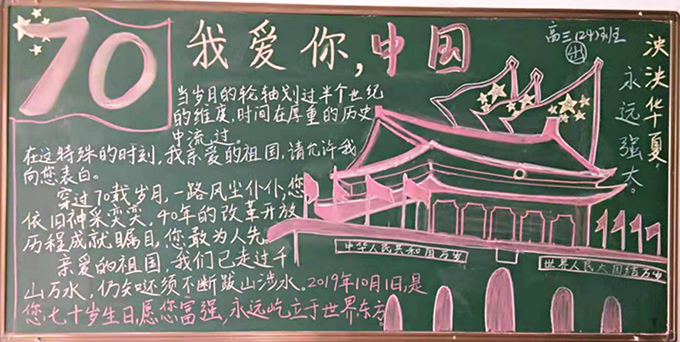 70
我爱你,中国
高三(24)班
出
泱泱华夏,
永远强大。
当岁月的轮轴划过半个世纪
的维度,时间在厚重的历史
中流过。
在这特殊的时刻,我亲爱的祖国,请允许我
向您表白。
穿过70载岁月,一路风尘仆仆,您
依旧神采奕奕,40年的改革开放
历程成就瞩目,您敢为人先。
亲爱的祖国,我们已走过千
山万水,仍知还须不断跋山涉水。2019年10月1日,是
您七十岁生日,愿您富强,永远屹立于世界东方
中华人民共和国万岁
世界人民大团结万岁